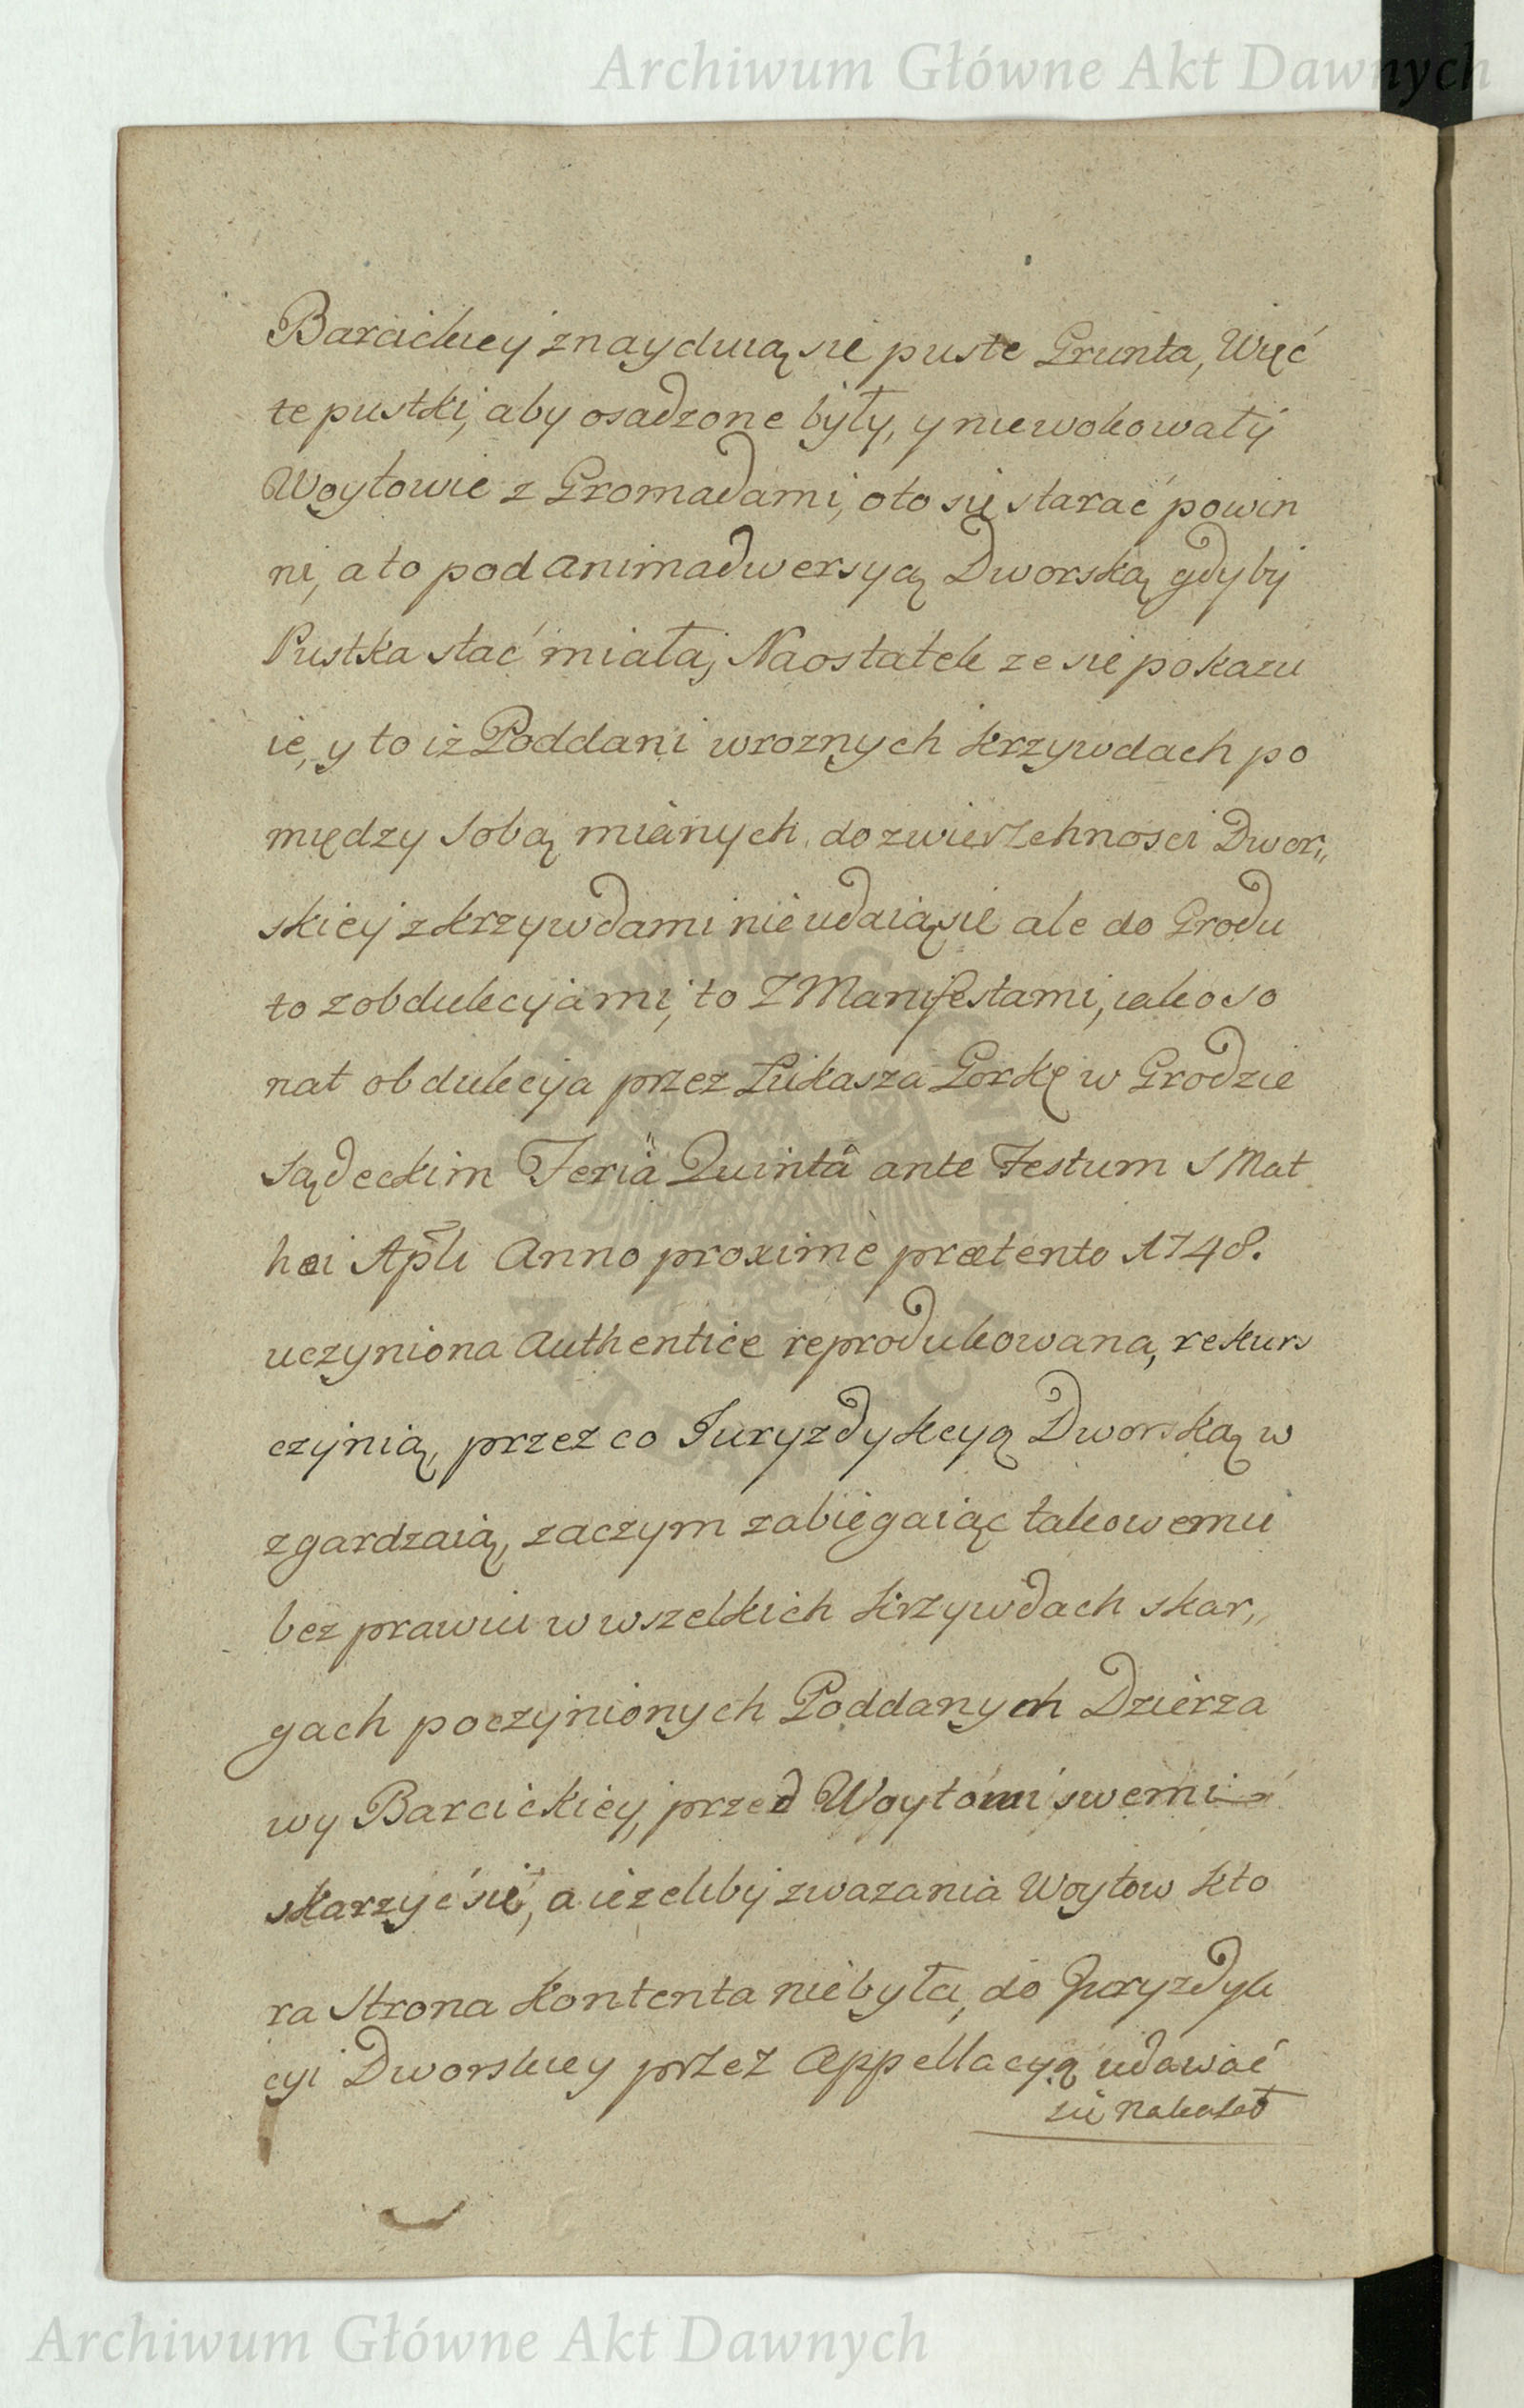 Archiwum Główne Akt Dawnych
Barcickiey znayduią się puste Grunta, Więć
te pustki, aby osadzone były, y niewokowały
Woytowie z Gromadami, oto się starać powin
ni, a to pod animadwersyą Dworską gdyby
Pustka stać miała, Naostatek ze sie pokazu
ie, y to iż Poddani wroznych krzywdach po
między sobą mianych do zwierzchnosci Dwor„
skiey z krzywdami nie udaią sie ale do Grodu
to z obdukcyiami, to Z Manifestami, iako so
nat obdukcyia przez Łukasza Gorkę w Grodzie
Sądeckim Feria Quintâ ante Festum S Mat
hæi Apli Anno proxime præterito 1748.
uczyniona Authentice reprodukowana, rekurs
czynią, przez co Juryzdykcyą Dworską w
zgardzaią, zaczym zabiegaiąc takowemu
bez prawiu w wszelkich krzywdach skar„
gach poczynionych Poddanych Dzierza
wy Barcickiey, przed Woytami swemi
skarzyć się, a iezeliby zwazania Woytow kto
ra Strona kontenta niebyła, do Juryzdyk
cyi Dworskiey przez Appellacyą udawać
się nakazał
ARCHIWUM GŁÓWNE AKT DAWNYCH
Archiwum Główne Akt Dawnych